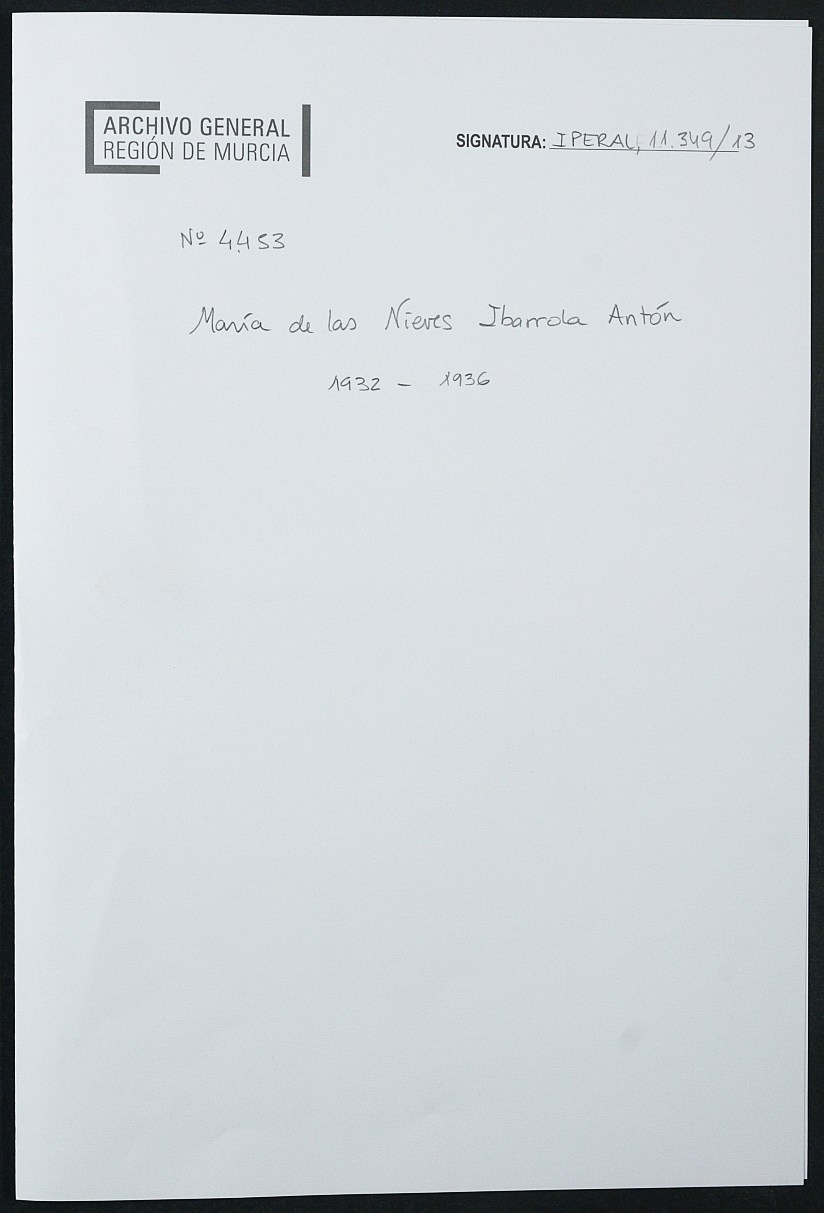 ARCHIVO GENERAL
REGIÓN DE MURCIA
SIGNATURA: IPERAL, 11.349/13
Nº 4.453
María de las Nieves Ibarrola Antón
1932 - 1936